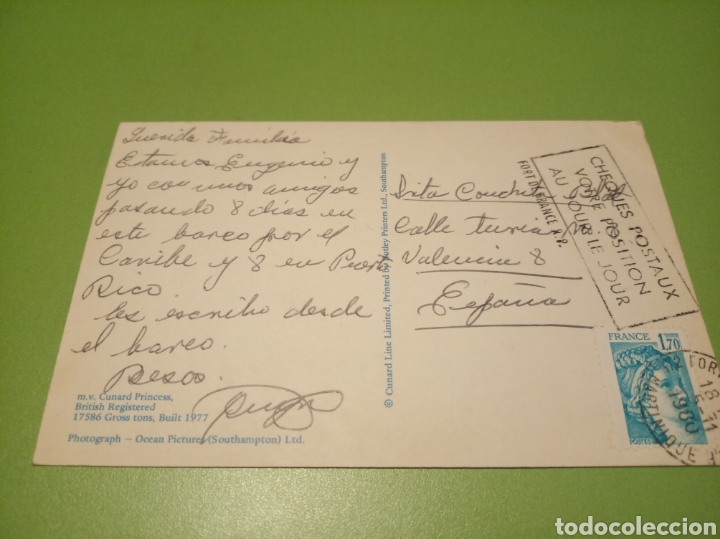 Querida Familia
Estamos Eugenio y
yo con unos amigos
pasando 8 dias en
este barco por el
Caribe y 8 en Puerto
Rico
les escribo desde
el barco.
Besos
m.v. Cunard Princess,
British Registered
17586 Gross tons, Built 1977
Photograph - Ocean Pictures (Southampton) Ltd.
© Cunard Line Limited, Printed by Motley Printers Ltd., Southampton
Srta
Calle Turia
Valencia 8
España
FORT DE FRANCE R.P.
CHEQUES POSTAUX
VOTRE POSITION
AU JOUR LE JOUR
FRANCE
1,70
18
5-11
1980
MARTINIQUE
todocoleccion